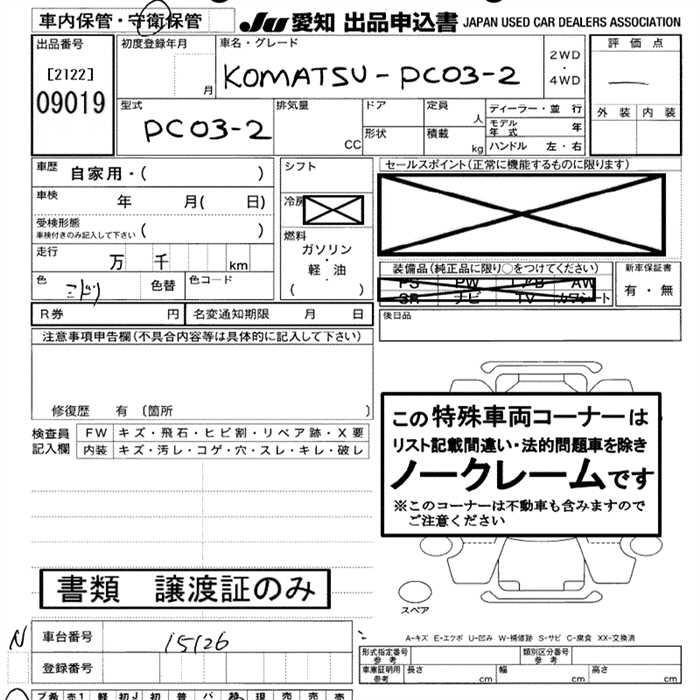 車内保管・守衛保管
JU 愛知 出品申込書 JAPAN USED CAR DEALERS ASSOCIATION
出品番号
[2122]
09019
初度登録年月
月
車名・グレード
KOMATSU-PC03-2
2WD
・
4WD
評価点
外装 内装
型式
PC03-2
排気量
CC
ドア
形状
定員
人
積載
kg
ディーラー・並行
モデル年式 年
ハンドル 左・右
車歴 自家用・( )
車検 年 月( 日)
受検形態
車検付きのみ記入して下さい ( )
走行 万 千 km
色 ミドリ 色替 色コード
シフト
冷房
燃料
ガソリン
・
軽・油
( )
セールスポイント(正常に機能するものに限ります)
装備品(純正品に限り○をつけてください)
PS PW エアB AW
SR ナビ TV カワシート
新車保証書
有・無
R券 円 名変通知期限 月 日
後日品
注意事項申告欄(不具合内容等は具体的に記入して下さい)
修復歴 有 (箇所 )
検査員
記入欄
FW キズ・飛石・ヒビ割・リペア跡・X要
内装 キズ・汚レ・コゲ・穴・スレ・キレ・破レ
この特殊車両コーナーは
リスト記載間違い・法的問題車を除き
ノークレームです
※このコーナーは不動車も含みますので
ご注意ください
書類 譲渡証のみ
スペア
N 車台番号 15126
登録番号
A-キズ E-エクボ U-凹み W-補修跡 S-サビ C-腐食 XX-交換済
形式指定番号
参考
類別区分番号
参考
車庫証明用
参考
長さ cm 幅 cm 高さ cm